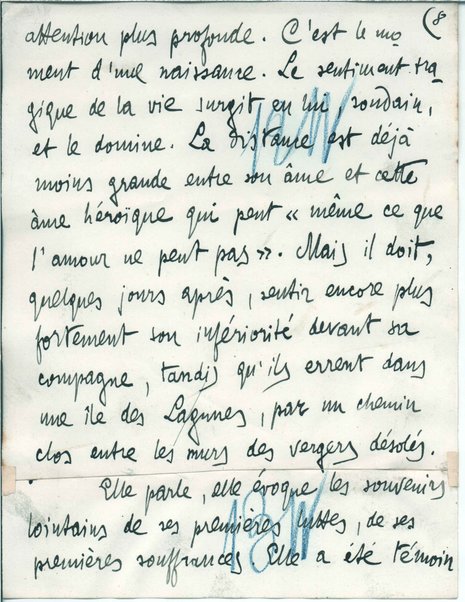 (8
attention plus profonde. C'est le mo
ment d'une naissance. Le sentiment tra
gique de la vie surgit, en un soudain,
et le domine. La distance est déjà
moins grande entre son âme et cette
âme héroïque qui peut « même ce que
l'amour ne peut pas ». Mais il doit,
quelques jours après, sentir encore plus
fortement son infériorité devant sa
compagne, tandis qu'ils errent dans
une île des Lagunes, par un chemin
clos entre les murs des vergers désolés.
Elle parle, elle évoque les souvenirs
lointains de ses premières luttes, de ses
premières souffrances. Elle a été témoin